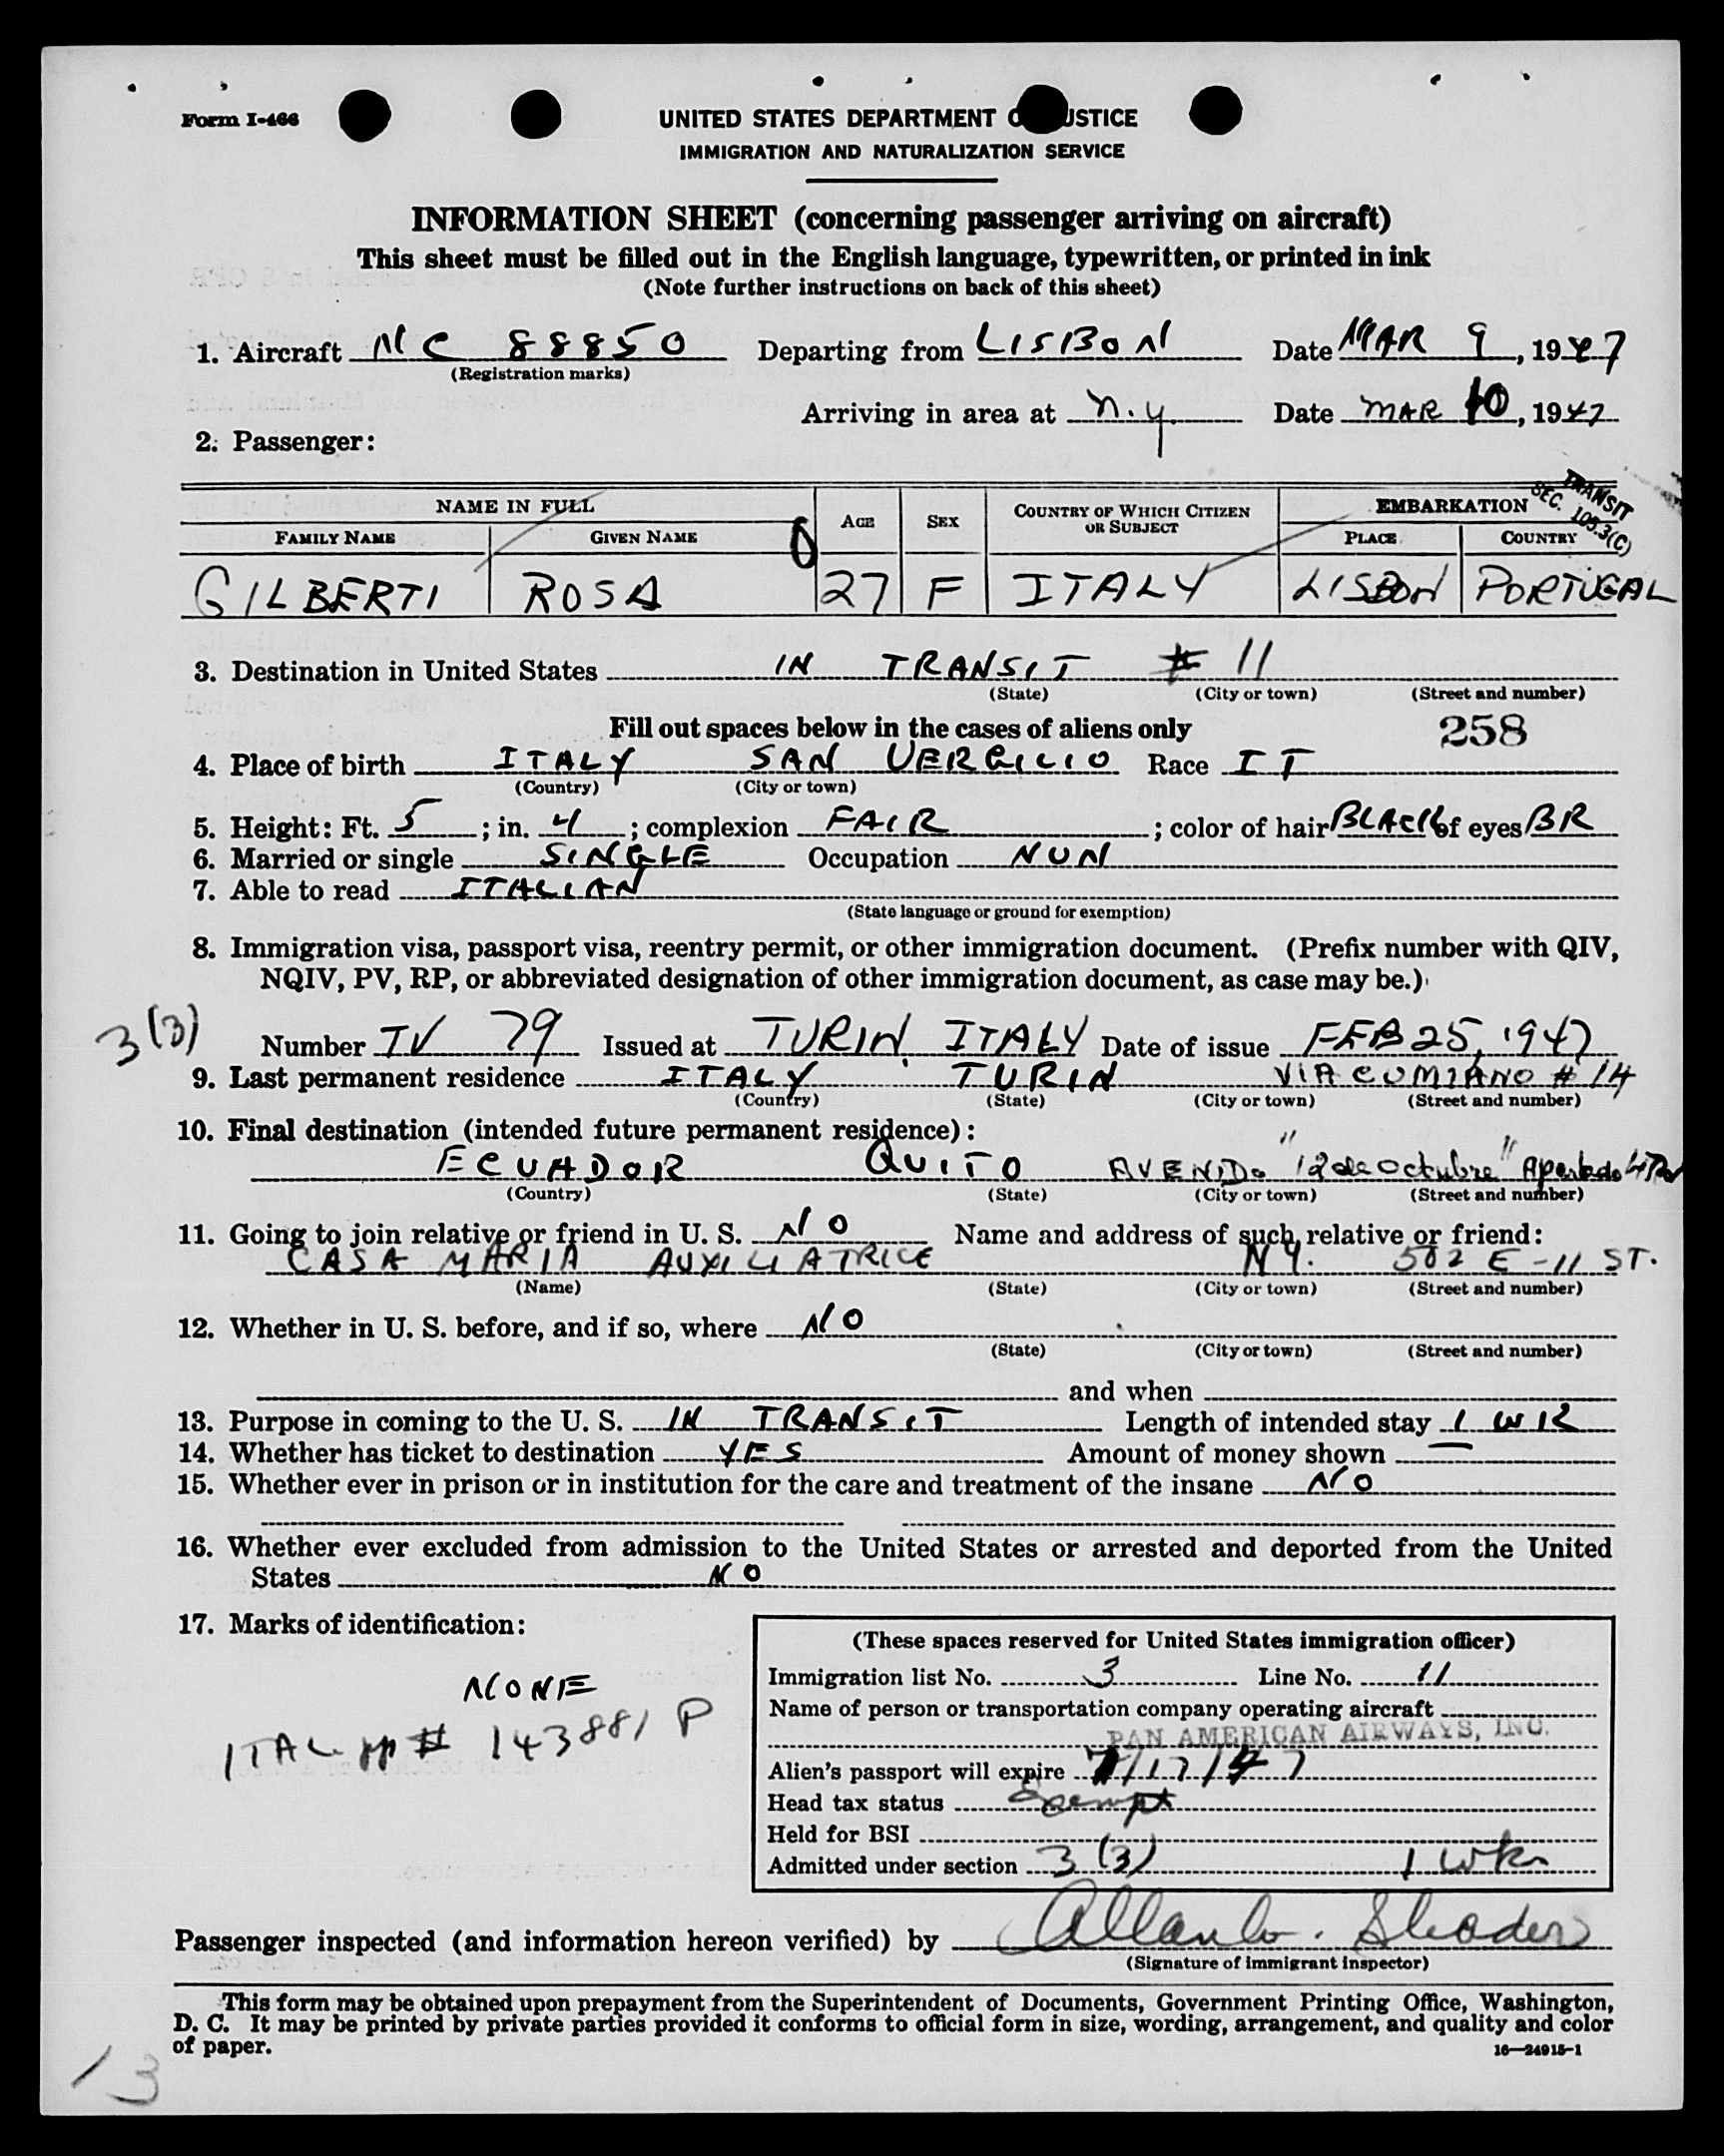 Form I-466
UNITED STATES DEPARTMENT O JUSTICE
IMMIGRATION AND NATURALIZATION SERVICE
INFORMATION SHEET (concerning passenger arriving on aircraft)
This sheet must be filled out in the English language, typewritten, or printed in ink
(Note further instructions on back of this sheet)
1. Aircraft NC 88850 Departing from LISBON Date MAR 9, 1947
(Registration marks)
Arriving in area at N.Y. Date MAR 10, 1947
2. Passenger:
TRANSIT
SEC. 105.3(C)
NAME IN FULL AGE SEX COUNTRY OF WHICH CITIZEN OR SUBJECT EMBARKATION
FAMILY NAME GIVEN NAME PLACE COUNTRY
GILBERTI ROSA 27 F ITALY LISBON PORTUGAL
3. Destination in United States IN TRANSIT # 11
(State) (City or town) (Street and number)
Fill out spaces below in the cases of aliens only 258
4. Place of birth ITALY SAN VERGILIO Race IT
(Country) (City or town)
5. Height: Ft. 5; in. 4; complexion FAIR; color of hair BLACK of eyes BR
6. Married or single SINGLE Occupation NUN
7. Able to read ITALIAN
(State language or ground for exemption)
8. Immigration visa, passport visa, reentry permit, or other immigration document. (Prefix number with QIV,
NQIV, PV, RP, or abbreviated designation of other immigration document, as case may be.)
3(3) Number TV 79 Issued at TURIN, ITALY Date of issue FEB 25, 1947
9. Last permanent residence ITALY TURIN VIA CUMIANO # 14
(Country) (State) (City or town) (Street and number)
10. Final destination (intended future permanent residence):
ECUADOR QUITO AVENIDA "12 de Octubre" Apartado
(Country) (State) (City or town) (Street and number)
11. Going to join relative or friend in U. S. NO Name and address of such relative or friend:
CASA MARIA AUXILIATRICE N.Y. 502 E - 11 ST.
(Name) (State) (City or town) (Street and number)
12. Whether in U. S. before, and if so, where NO
(State) (City or town) (Street and number)
and when
13. Purpose in coming to the U. S. IN TRANSIT Length of intended stay 1 WK
14. Whether has ticket to destination YES Amount of money shown —
15. Whether ever in prison or in institution for the care and treatment of the insane NO
16. Whether ever excluded from admission to the United States or arrested and deported from the United
States NO
17. Marks of identification:
NONE
ITAL pp # 143881 P
(These spaces reserved for United States immigration officer)
Immigration list No. 3 Line No. 11
Name of person or transportation company operating aircraft
PAN AMERICAN AIRWAYS, INC.
Alien's passport will expire 7/17/47
Head tax status Exempt
Held for BSI
Admitted under section 3(3) 1 wk
Passenger inspected (and information hereon verified) by
(Signature of immigrant inspector)
This form may be obtained upon prepayment from the Superintendent of Documents, Government Printing Office, Washington,
D. C. It may be printed by private parties provided it conforms to official form in size, wording, arrangement, and quality and color
of paper.
16—24915-1
13